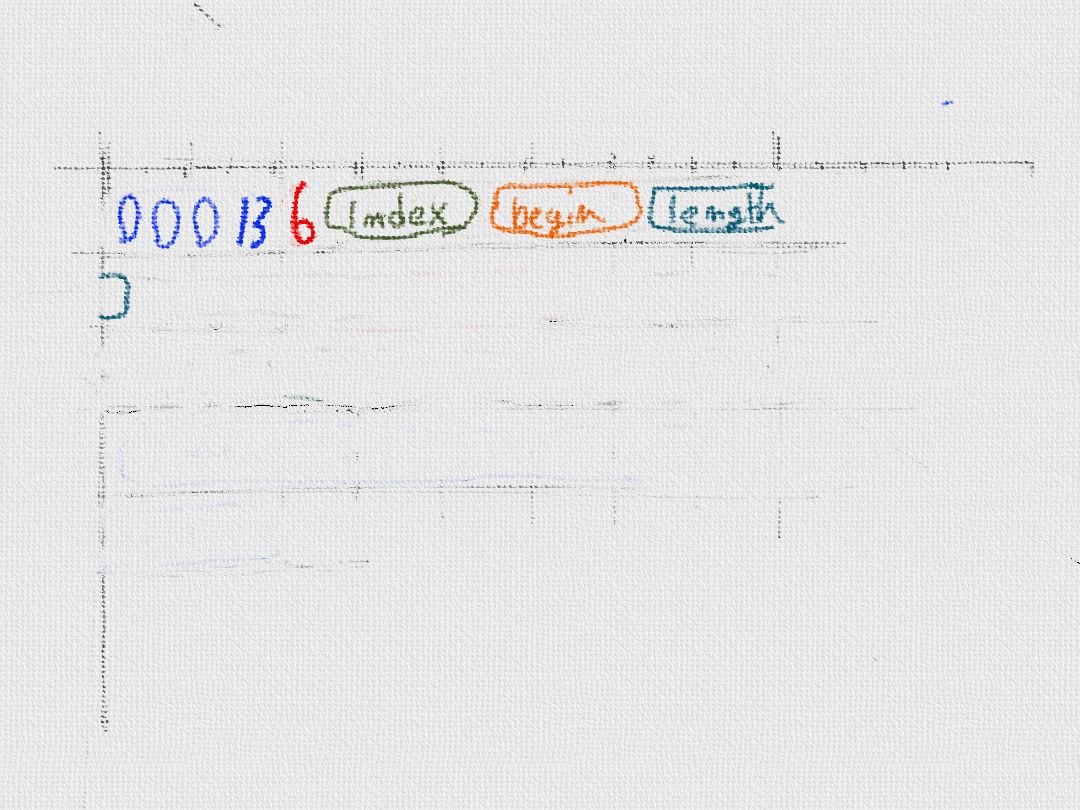 0 0 0 13 6 index begin length